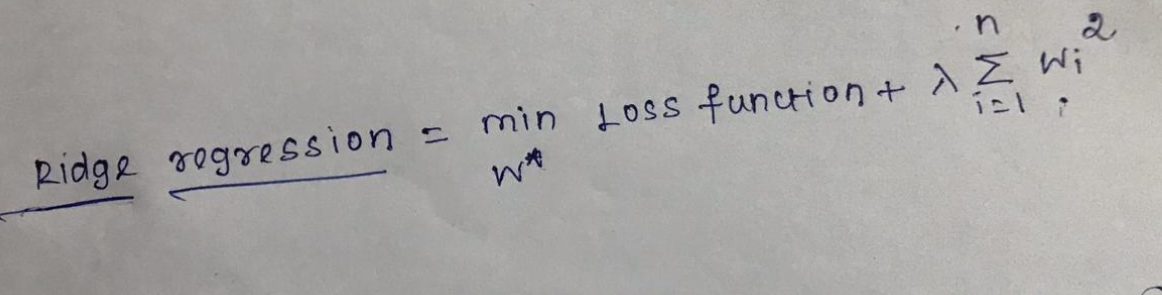 Ridge regression = min w* Loss function + λ n Σ i=1 wi²